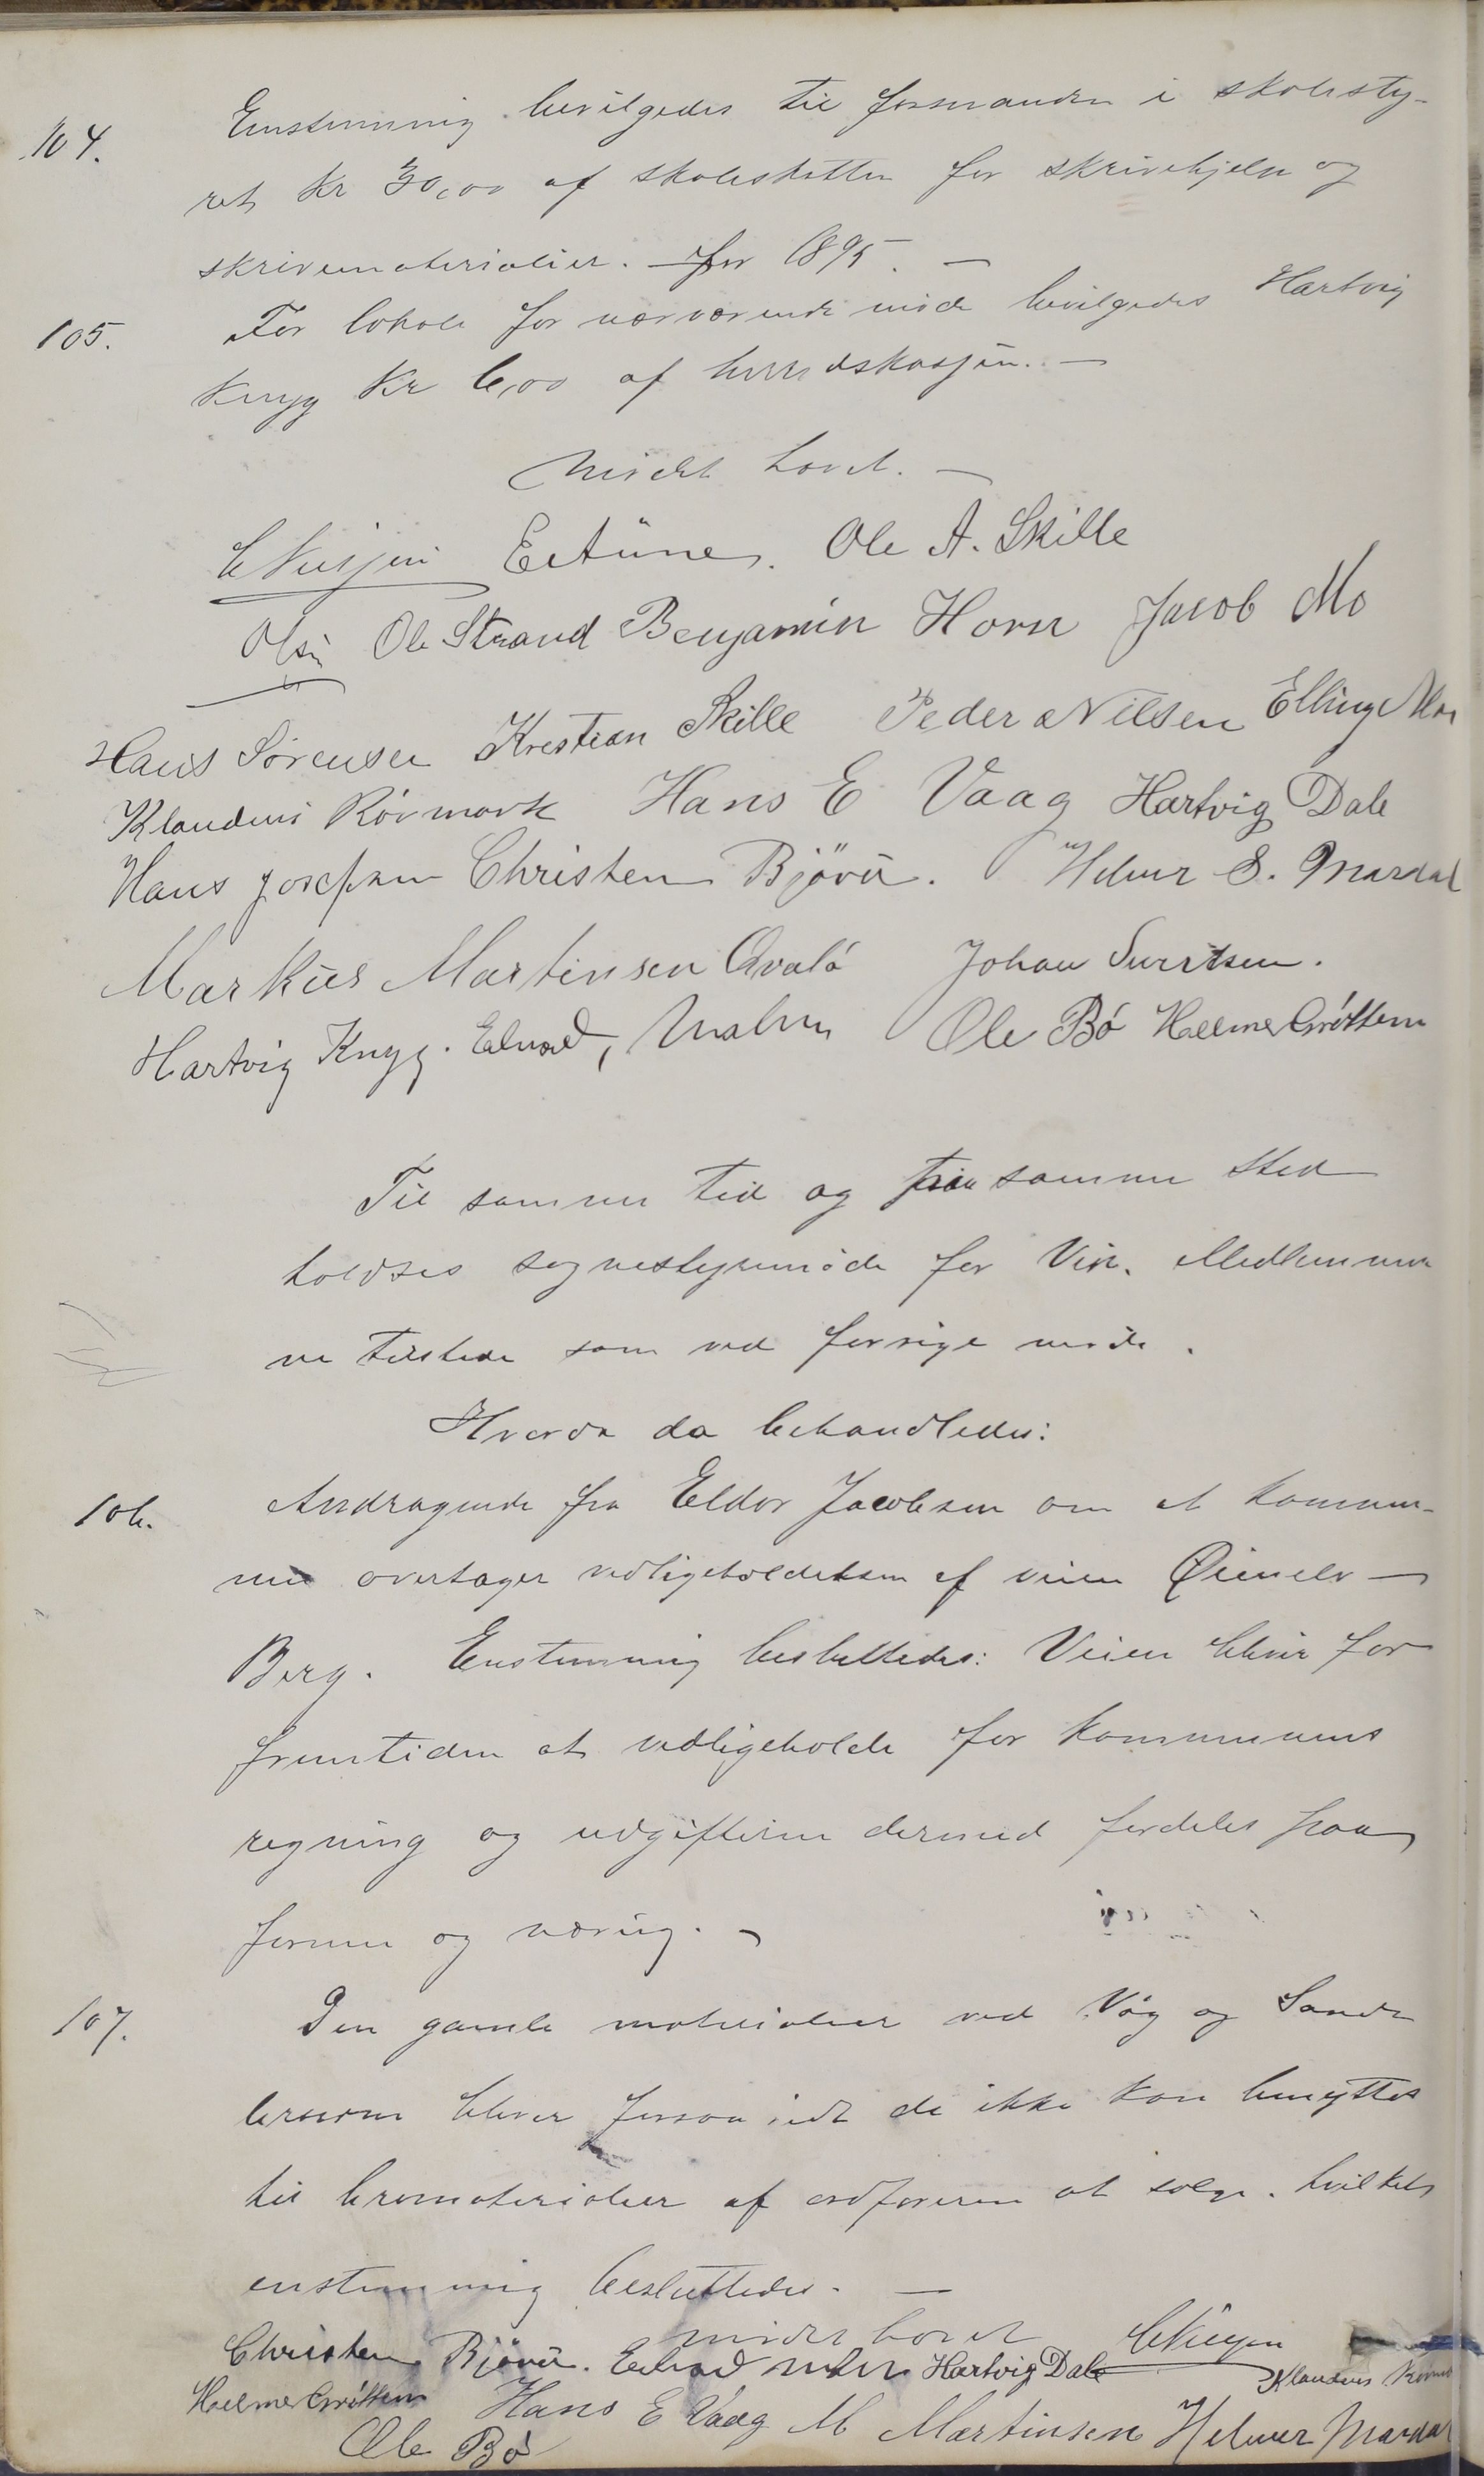 104. Enstemmig bevilgedes til formanden i skolesty-
ret Kr 30,00 af skoleskatten for skrivehjelp og
skrivematerialier. for 1895. —
105. For lokale for nærværende møde bevilgedes Hartvig
Knyg Kr 6,00 af herredskassen. —
Mødet hævet. —
Ole A. Skille
Olsen Ole Strand Benjamin Horn Jacob Mo
Hans Sørensen Krestian Skille Peder Nilsen Elling
Klaudius Rörmark Hans E Vaag Hartvig Dale
Hans Josefsen Christen Björu. Helmer S. Mardal
Markus Martinsen Qvalö Johan Sivertsen.
Hartvig Knyg. Edvard Malm Ole Bö Helmer Gröttem
Til samme tid og paa samme sted
holdtes sognestyremöde for Vik. Medlemmer
ne tilstede som ved forrige möde.
Hvorda da behandledes:
106. Andragende fra Eldor Jacobsen om at kommu-
nen overtager vedligeholdelsen af veien Øienelv —
Berg. Enstemmig besluttedes: Veien bliver for
fremtiden at vedligeholde for kommunens
regning og udgifterne dermed fordeles paa
formue og næring. —
107. Den gamle materialier ved Våg og Sande
broerne bliver forsaavidt de ikke kan benyttes
til bromaterialier af ordføreren at sælge. hvilket
enstemmig besluttedes. —
mødet hævet
Christen Björu. Edvard Malm Hartvig Dale Klaudius
Helmer Gröttem Hans E Vaag M Martinsen Helmer Mardal
Ole Bö